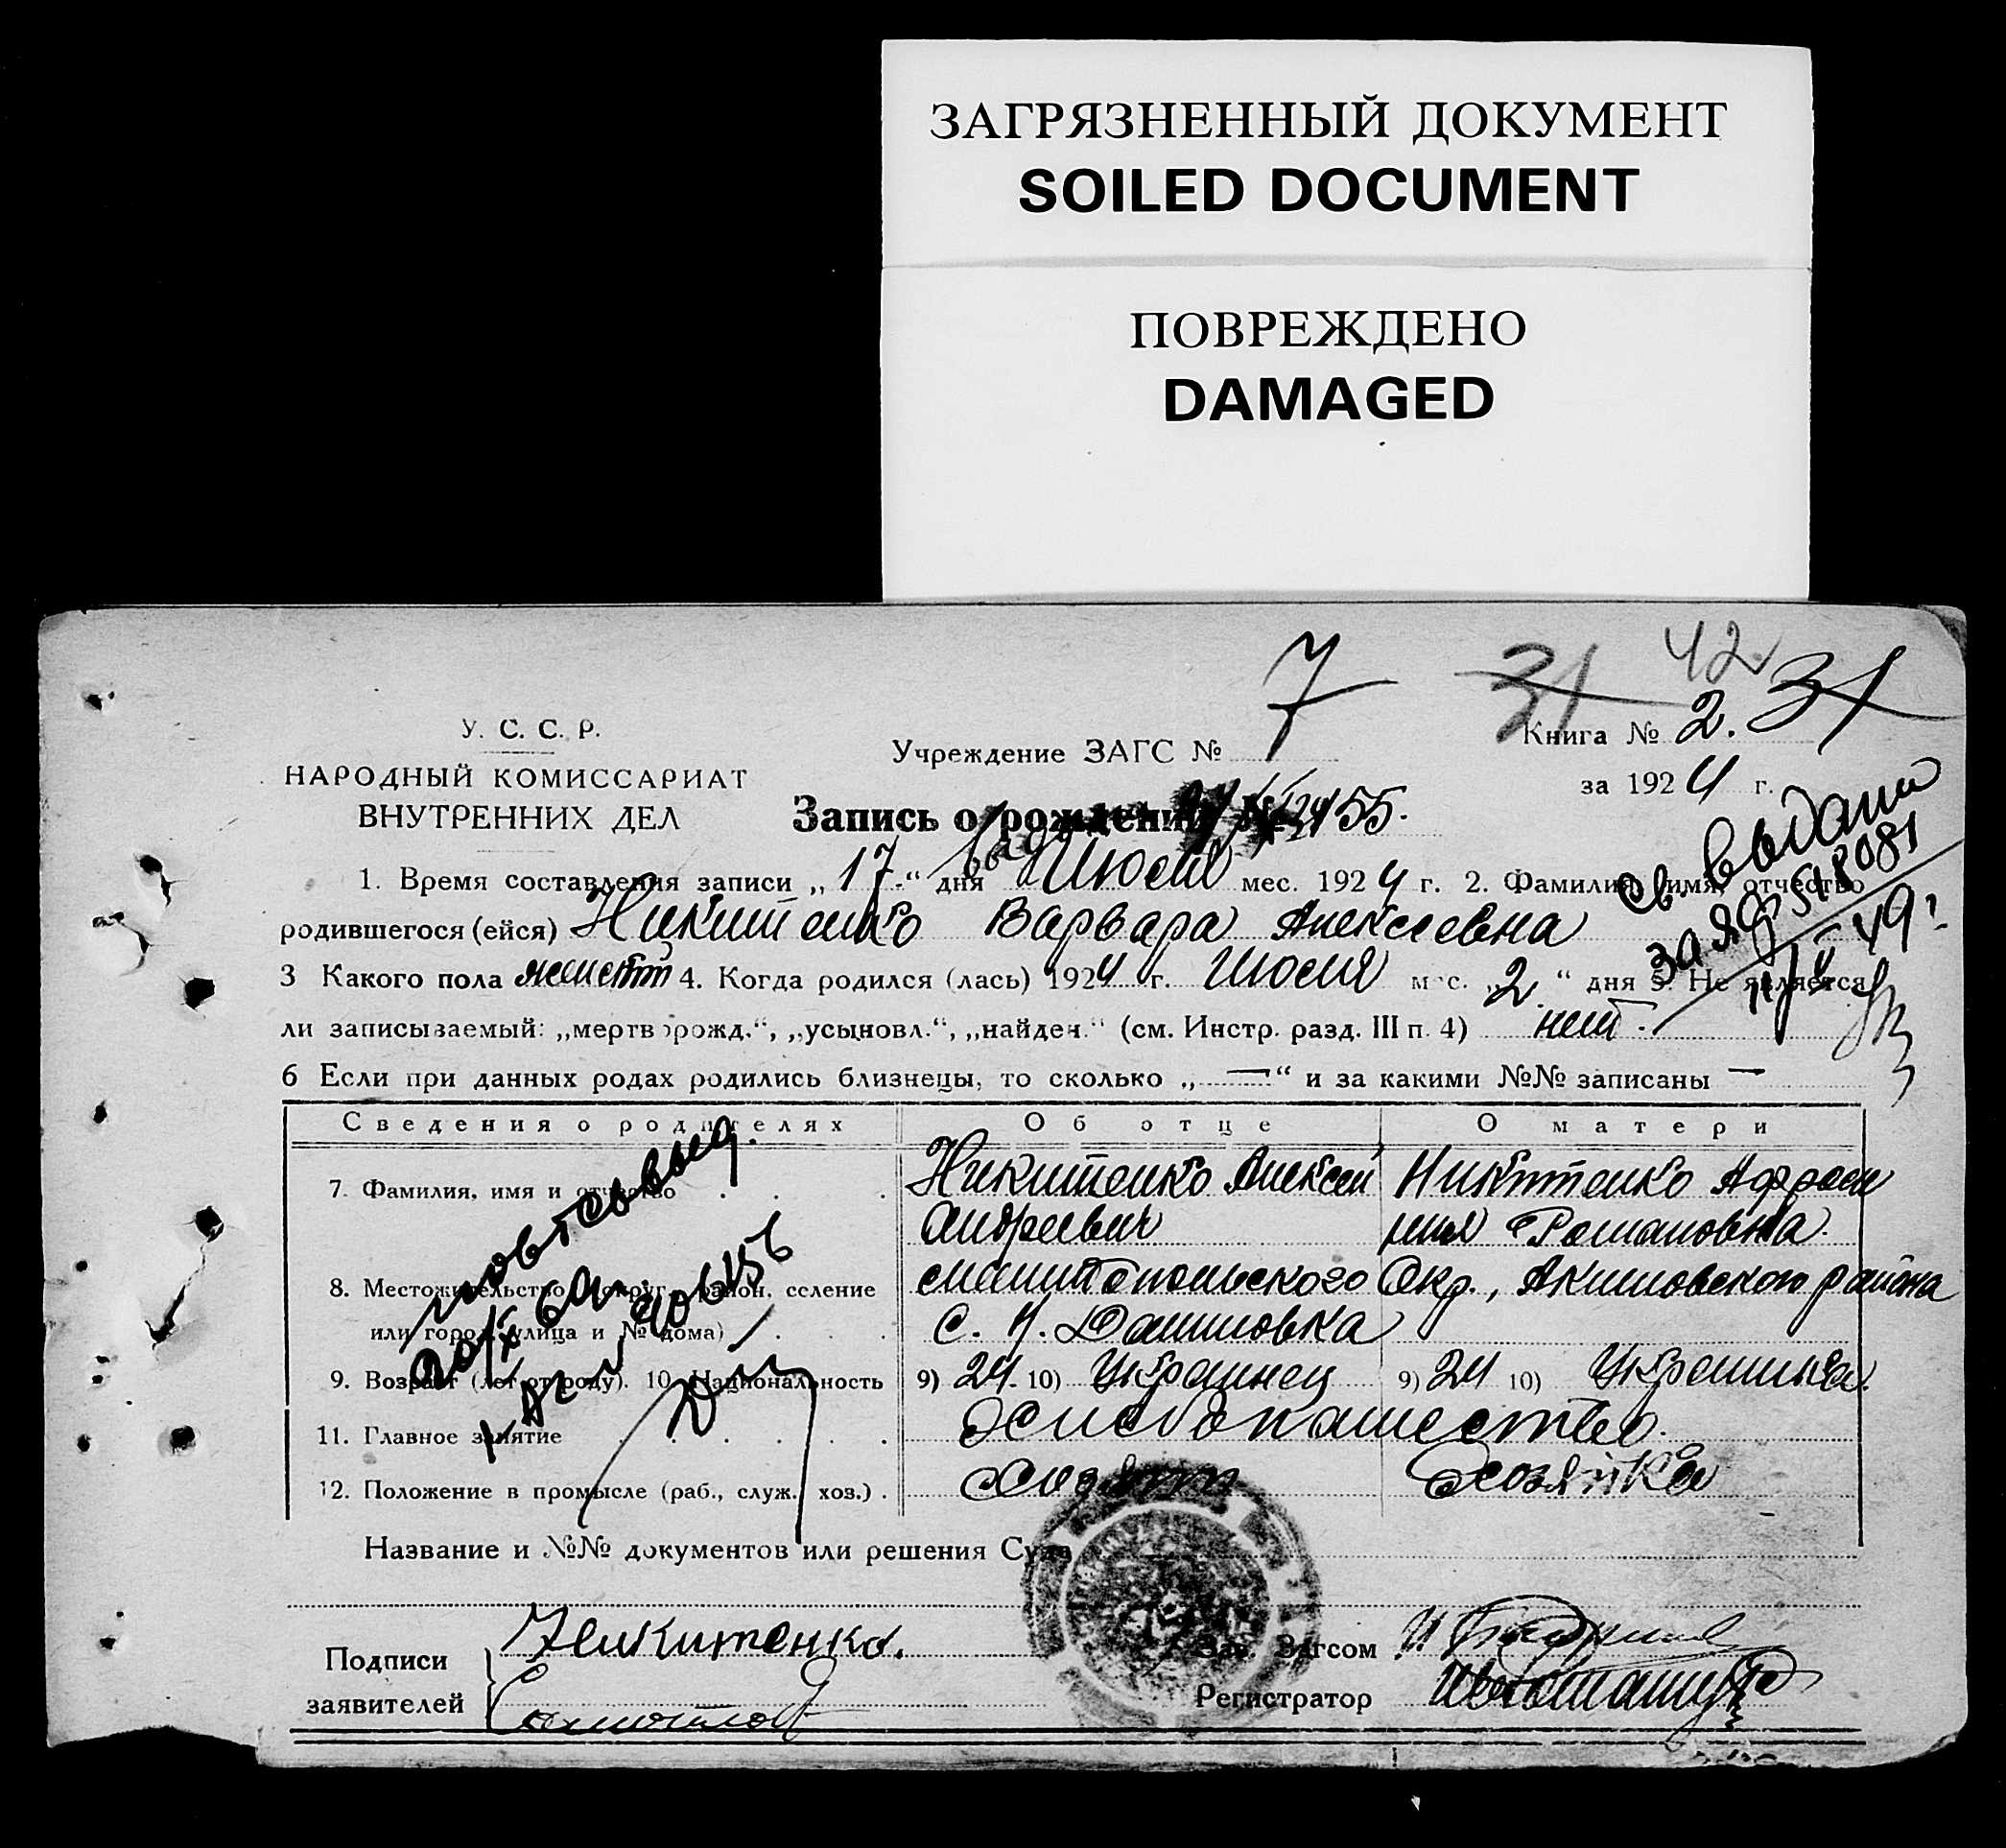 ЗАГРЯЗНЕННЫЙ ДОКУМЕНТ
SOILED DOCUMENT
ПОВРЕЖДЕНО
DAMAGED
42
31
У. С. С. Р.
НАРОДНЫЙ КОМИССАРИАТ
ВНУТРЕННИХ ДЕЛ
Учреждение ЗАГС № 7
Книга № 2. 31
за 1924 г.
Запись о рождении № 55.
Св. выдано
ЗА ЯФ 548081
49г.
1. Время составления записи „17“ дня Июля мес. 1924 г. 2. Фамилия, имя, отчество
родившегося (ейся) Никитенко Варвара Алексеевна
3 Какого пола женск 4. Когда родился (лась) 1924 г. Июля мес. „2“ дня 5. Не является
ли записываемый: „мертворожд.“, „усыновл.“, „найден.“ (см. Инстр. разд. III п. 4) нет.
6 Если при данных родах родились близнецы, то сколько „—“ и за какими №№ записаны —
Сведения о родителях Об отце О матери
7. Фамилия, имя и отчество Никитенко Алексей Никитенко Афросин
Андреевич ния Романовна.
8. Местожительство (округ, район, селение Мелитопольского Окр., Акимовского района
или город, улица и № дома) с. Н. Даниловка
9. Возраст (лет от роду). 10. Национальность 9) 24 10) Украинец 9) 24 10) Украинка.
11. Главное занятие Хлебопашество.
12. Положение в промысле (раб., служ., хоз.) Хозяин Хозяйка
повт св выд.
Название и №№ документов или решения Суда
Подписи
заявителей
Никитенко.
Зав. Загсом
Регистратор